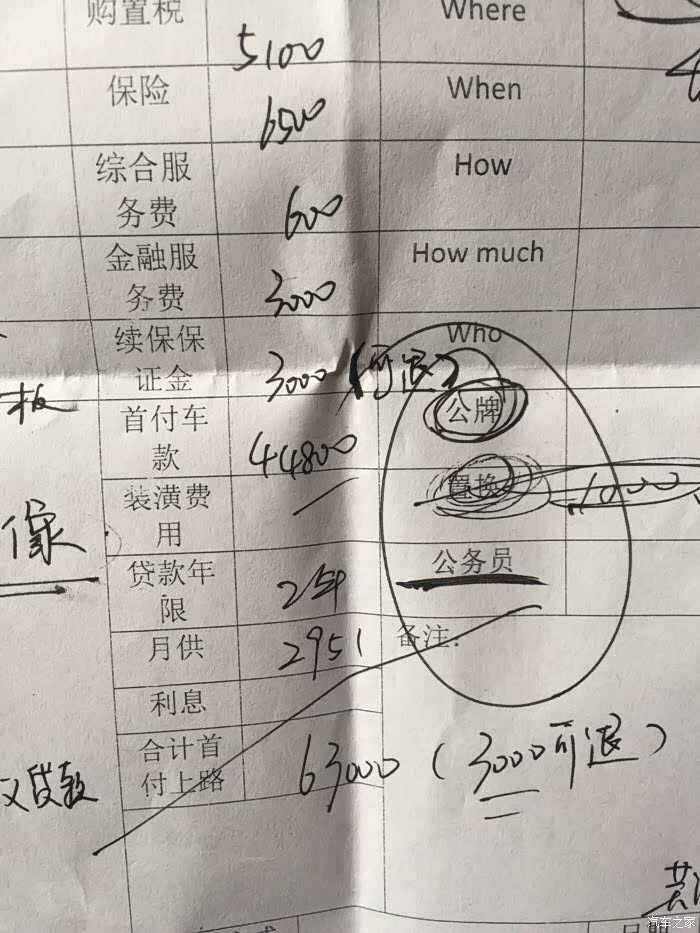 购置税
5100
Where
保险
6500
When
综合服
务费
600
How
金融服
务费
3000
How much
续保保
证金
3000(可退)
Who
公牌
首付车
款
44800
置换
1000
装潢费
用
公务员
贷款年
限
2年
月供
2951
备注:
利息
合计首
付上路
63000 (3000可退)
板
像
贷款
汽车之家